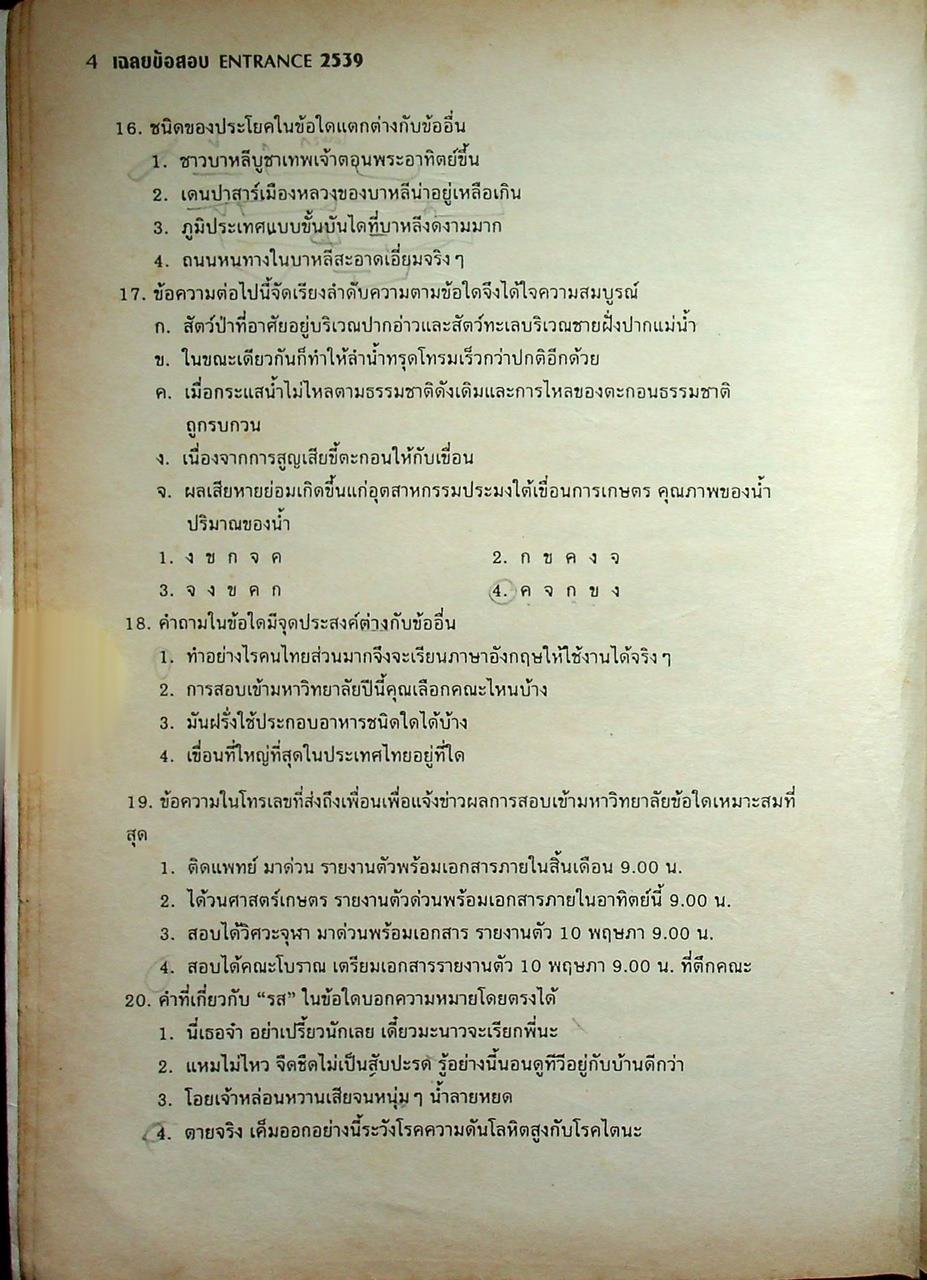 4 เฉลยข้อสอบ ENTRANCE 2539
16. ชนิดของประโยคในข้อใดแตกต่างกับข้ออื่น
1. ชาวบาหลีบูชาเทพเจ้าตอนพระอาทิตย์ขึ้น
2. เดนปาสาร์เมืองหลวงของบาหลีน่าอยู่เหลือเกิน
3. ภูมิประเทศแบบขั้นบันไดที่บาหลีงดงามมาก
4. ถนนหนทางในบาหลีสะอาดเอี่ยมจริง ๆ
17. ข้อความต่อไปนี้จัดเรียงลำดับความตามข้อใดจึงได้ใจความสมบูรณ์
ก. สัตว์ป่าที่อาศัยอยู่บริเวณปากอ่าวและสัตว์ทะเลบริเวณชายฝั่งปากแม่น้ำ
ข. ในขณะเดียวกันก็ทำให้ลำน้ำทรุดโทรมเร็วกว่าปกติอีกด้วย
ค. เมื่อกระแสน้ำไม่ไหลตามธรรมชาติดังเดิมและการไหลของตะกอนธรรมชาติ
ถูกรบกวน
ง. เนื่องจากการสูญเสียขี้ตะกอนให้กับเขื่อน
จ. ผลเสียหายย่อมเกิดขึ้นแก่อุตสาหกรรมประมงใต้เขื่อนการเกษตร คุณภาพของน้ำ
ปริมาณของน้ำ
1. ง ข ก จ ค 2. ก ข ค ง จ
3. จ ง ข ค ก 4. ค จ ก ข ง
18. คำถามในข้อใดมีจุดประสงค์ต่างกับข้ออื่น
1. ทำอย่างไรคนไทยส่วนมากจึงจะเรียนภาษาอังกฤษให้ใช้งานได้จริง ๆ
2. การสอบเข้ามหาวิทยาลัยปีนี้คุณเลือกคณะไหนบ้าง
3. มันฝรั่งใช้ประกอบอาหารชนิดใดได้บ้าง
4. เขื่อนที่ใหญ่ที่สุดในประเทศไทยอยู่ที่ใด
19. ข้อความในโทรเลขที่ส่งถึงเพื่อนเพื่อแจ้งข่าวผลการสอบเข้ามหาวิทยาลัยข้อใดเหมาะสมที่
สุด
1. ติดแพทย์ มาด่วน รายงานตัวพร้อมเอกสารภายในสิ้นเดือน 9.00 น.
2. ได้วนศาสตร์เกษตร รายงานตัวด่วนพร้อมเอกสารภายในอาทิตย์นี้ 9.00 น.
3. สอบได้วิศวะจุฬา มาด่วนพร้อมเอกสาร รายงานตัว 10 พฤษภา 9.00 น.
4. สอบได้คณะโบราณ เตรียมเอกสารรายงานตัว 10 พฤษภา 9.00 น. ที่ตึกคณะ
20. คำที่เกี่ยวกับ “รส” ในข้อใดบอกความหมายโดยตรงได้
1. นี่เธอจ๋า อย่าเปรี้ยวนักเลย เดี๋ยวมะนาวจะเรียกพี่นะ
2. แหมไม่ไหว จืดชืดไม่เป็นสับปะรด รู้อย่างนี้นอนดูทีวีอยู่กับบ้านดีกว่า
3. โอยเจ้าหล่อนหวานเสียจนหนุ่ม ๆ น้ำลายหยด
4. ตายจริง เค็มออกอย่างนี้ระวังโรคความดันโลหิตสูงกับโรคไตนะ